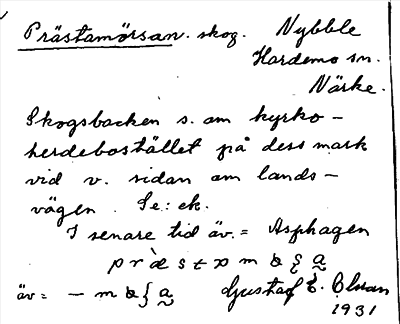 Prästamörsan. skog. Nybble
Hardemo sn.
Närke.
Skogsbacken s. om kyrko-
herdebostället på dess mark
vid v. sidan om lands-
vägen. Se: ek.
I senare tid äv. = Asphagen
äv =
Gustaf E. Olsson
1931